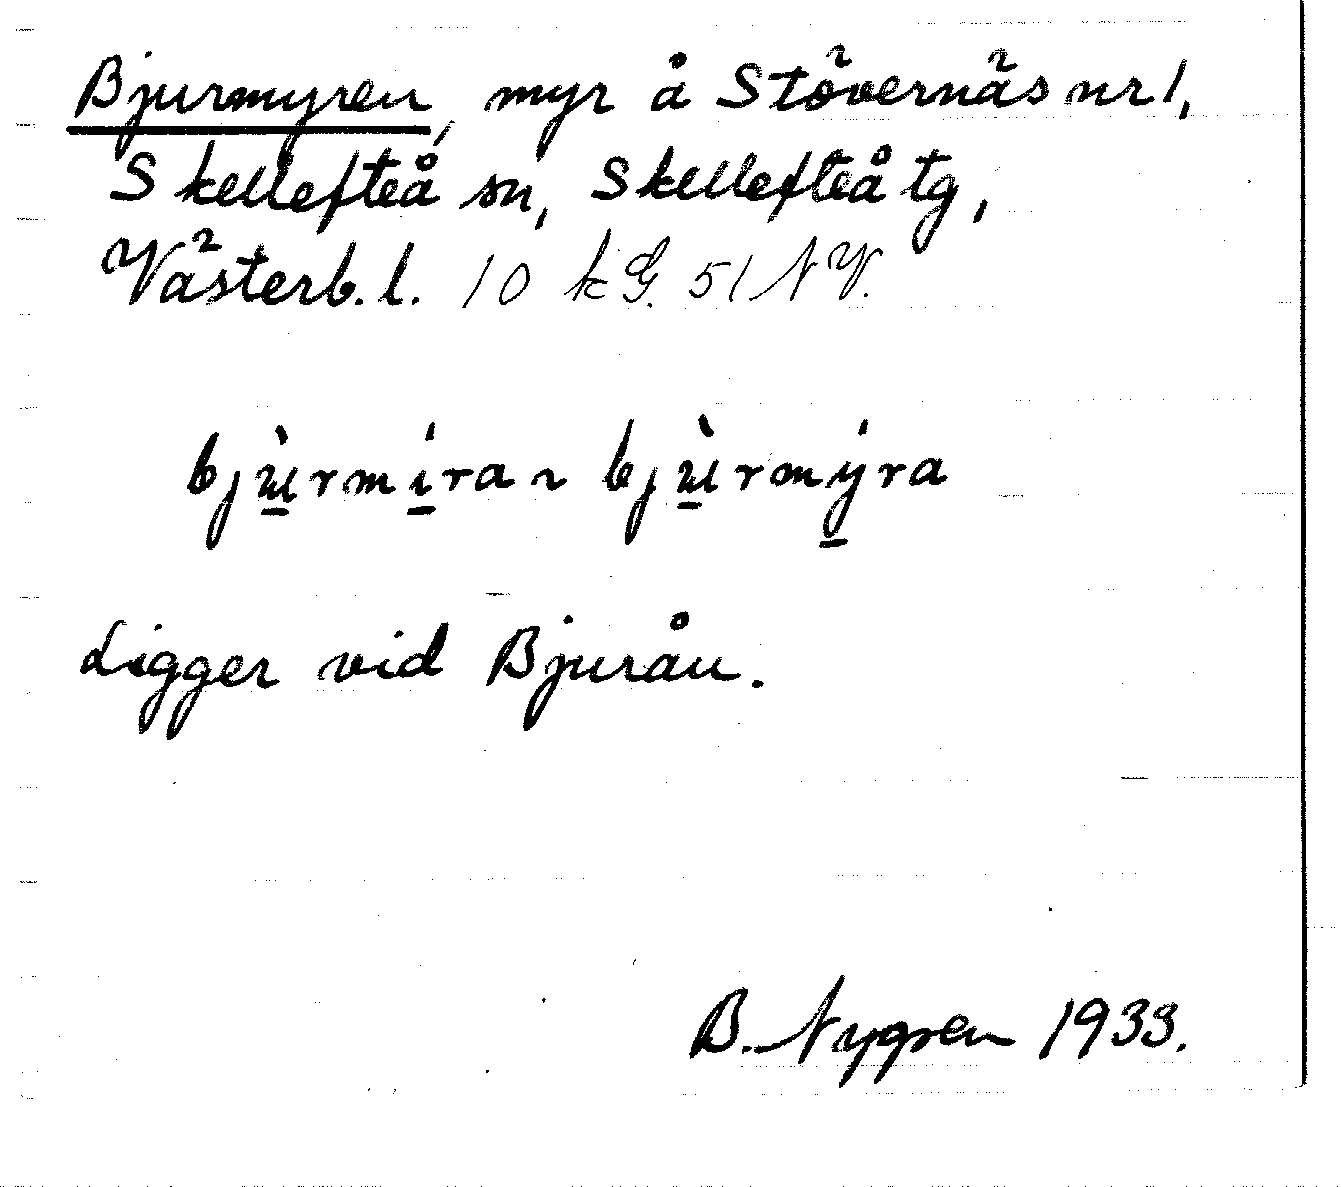 Bjurmyren, myr å Stövernäs nr 1,
Skellefteå sn, Skellefteå tg,
Västerb. l. 10 kG. 51 NV.
bjʉ̠̀rmí̠ra ~ bjʉ̠̀rmý̠ra
Ligger vid Bjurån.
B. Nygren 1933.